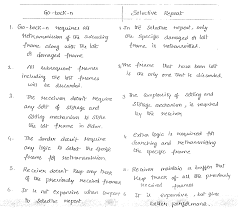 Go-back-n
Selective Repeat
1. Go-back-n requires all
retransmission of the succeeding
frame along with the lost
or damaged frame.
In the Selective repeat, only
the specific damaged or lost
frame is retransmitted.
2. All subsequent frames
including the lost frames
will be discarded.
The frame that have been lost
is the only one that is discarded.
3. The receiver doesn't require
any sort of storage and
sorting mechanism to store
the lost frame in order.
The complexity of sorting and
storage mechanism, is required
by the receiver.
4. The sender doesn't require
any logic to select the specific
frame for retransmission.
Extra logic is required for
searching and retransmitting
the specific frame.
5. Receiver doesn't keep any track
of the previously received frames.
Receiver maintain a buffer that
keep track of all the previously
received frames
6. It is not expensive when
to Selective repeat.
It is expensive, but give
better performance.